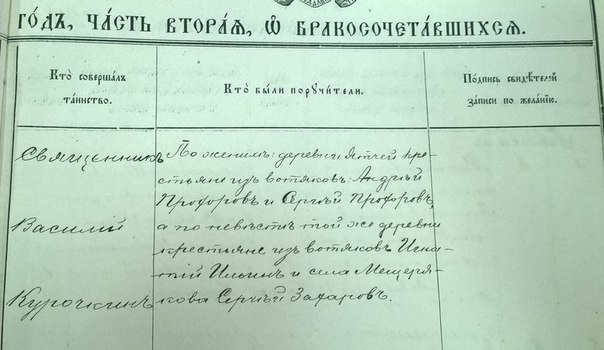 ГО́ДЪ, ЧА́СТЬ ВТОРА́Я, Ѿ БРАКОСОЧЕТА́ВШИХСЯ.
Кто̀ соверша́лъ
та́инство.
Кто̀ бы́ли поручи́тели.
По́дпись свидѣ́телей
за́писи по жела́нію.
Священникъ
Василій
Курочкинъ
По женихѣ: деревни Ятчей кре-
стьяне изъ вотяковъ: Андрей
Прохоровъ и Сергѣй Прохоровъ,
а по невѣстѣ той же деревни
крестьяне изъ вотяковъ Игна-
тій Ильинъ и села Мещеря-
кова Сергѣй Захаровъ.